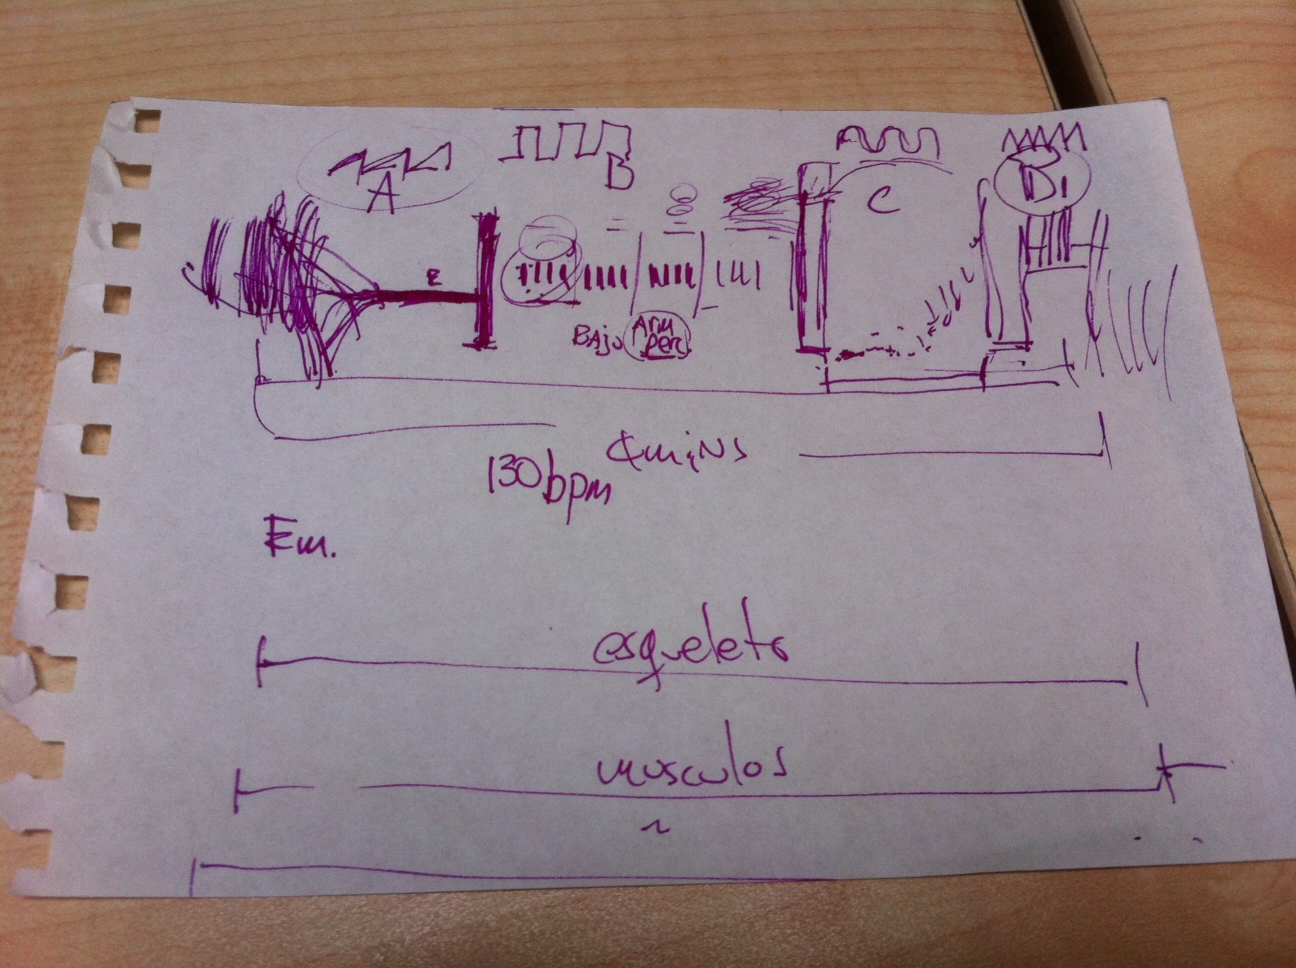 A
B
C
D1
E
BAJO
Arm
Perc
4mins
130bpm
Em.
esqueleto
musculos